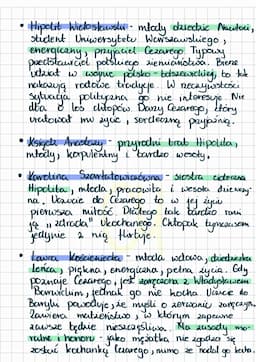 • Hipolit Wielosławski - młody dziedzic Nawłoci,
student Uniwersytetu Warszawskiego,
energiczny, przyjaciel Cezarego. Typowy
przedstawiciel polskiego ziemiaństwa. Bierze
udział w wojnie polsko-bolszewickiej, bo tak
nakazują rodowe tradycje. W rzeczywistości
sytuacja polityczna go nie interesuje. Nie
dba o los chłopów. Darzy Cezarego, który
uratował mu życie, serdeczną przyjaźnią.
• Ksiądz Anastazy - przyrodni brat Hipolita,
młody, korpulentny i bardzo wesoły.
• Karolina Szarłatowiczówna - siostra cioteczna
Hipolita, młoda, pracowita i wesoła dziewczy-
na. Uczucie do Cezarego to w jej życiu
pierwsza miłość. Dlatego tak bardzo rani
ją "zdrada" ukochanego. Chłopak tymczasem
jedynie z nią flirtuje.
• Laura Kościeniecka - młoda wdowa, dziedziczka
Leńca, piękna, energiczna, pełna życia. Gdy
poznaje Cezarego, jest zaręczona z Władysławem
Barwickim, jednak go nie kocha. Uczucie do
Baryki powoduje, że myśli o zerwaniu zaręczyn.
Zawiera małżeństwo, w którym zapewne
zawsze będzie nieszczęśliwa. Ma zasady mo-
ralne i honor - jako mężatka nie zgadza się
zostać kochanką Cezarego, mimo że nadal go kocha.